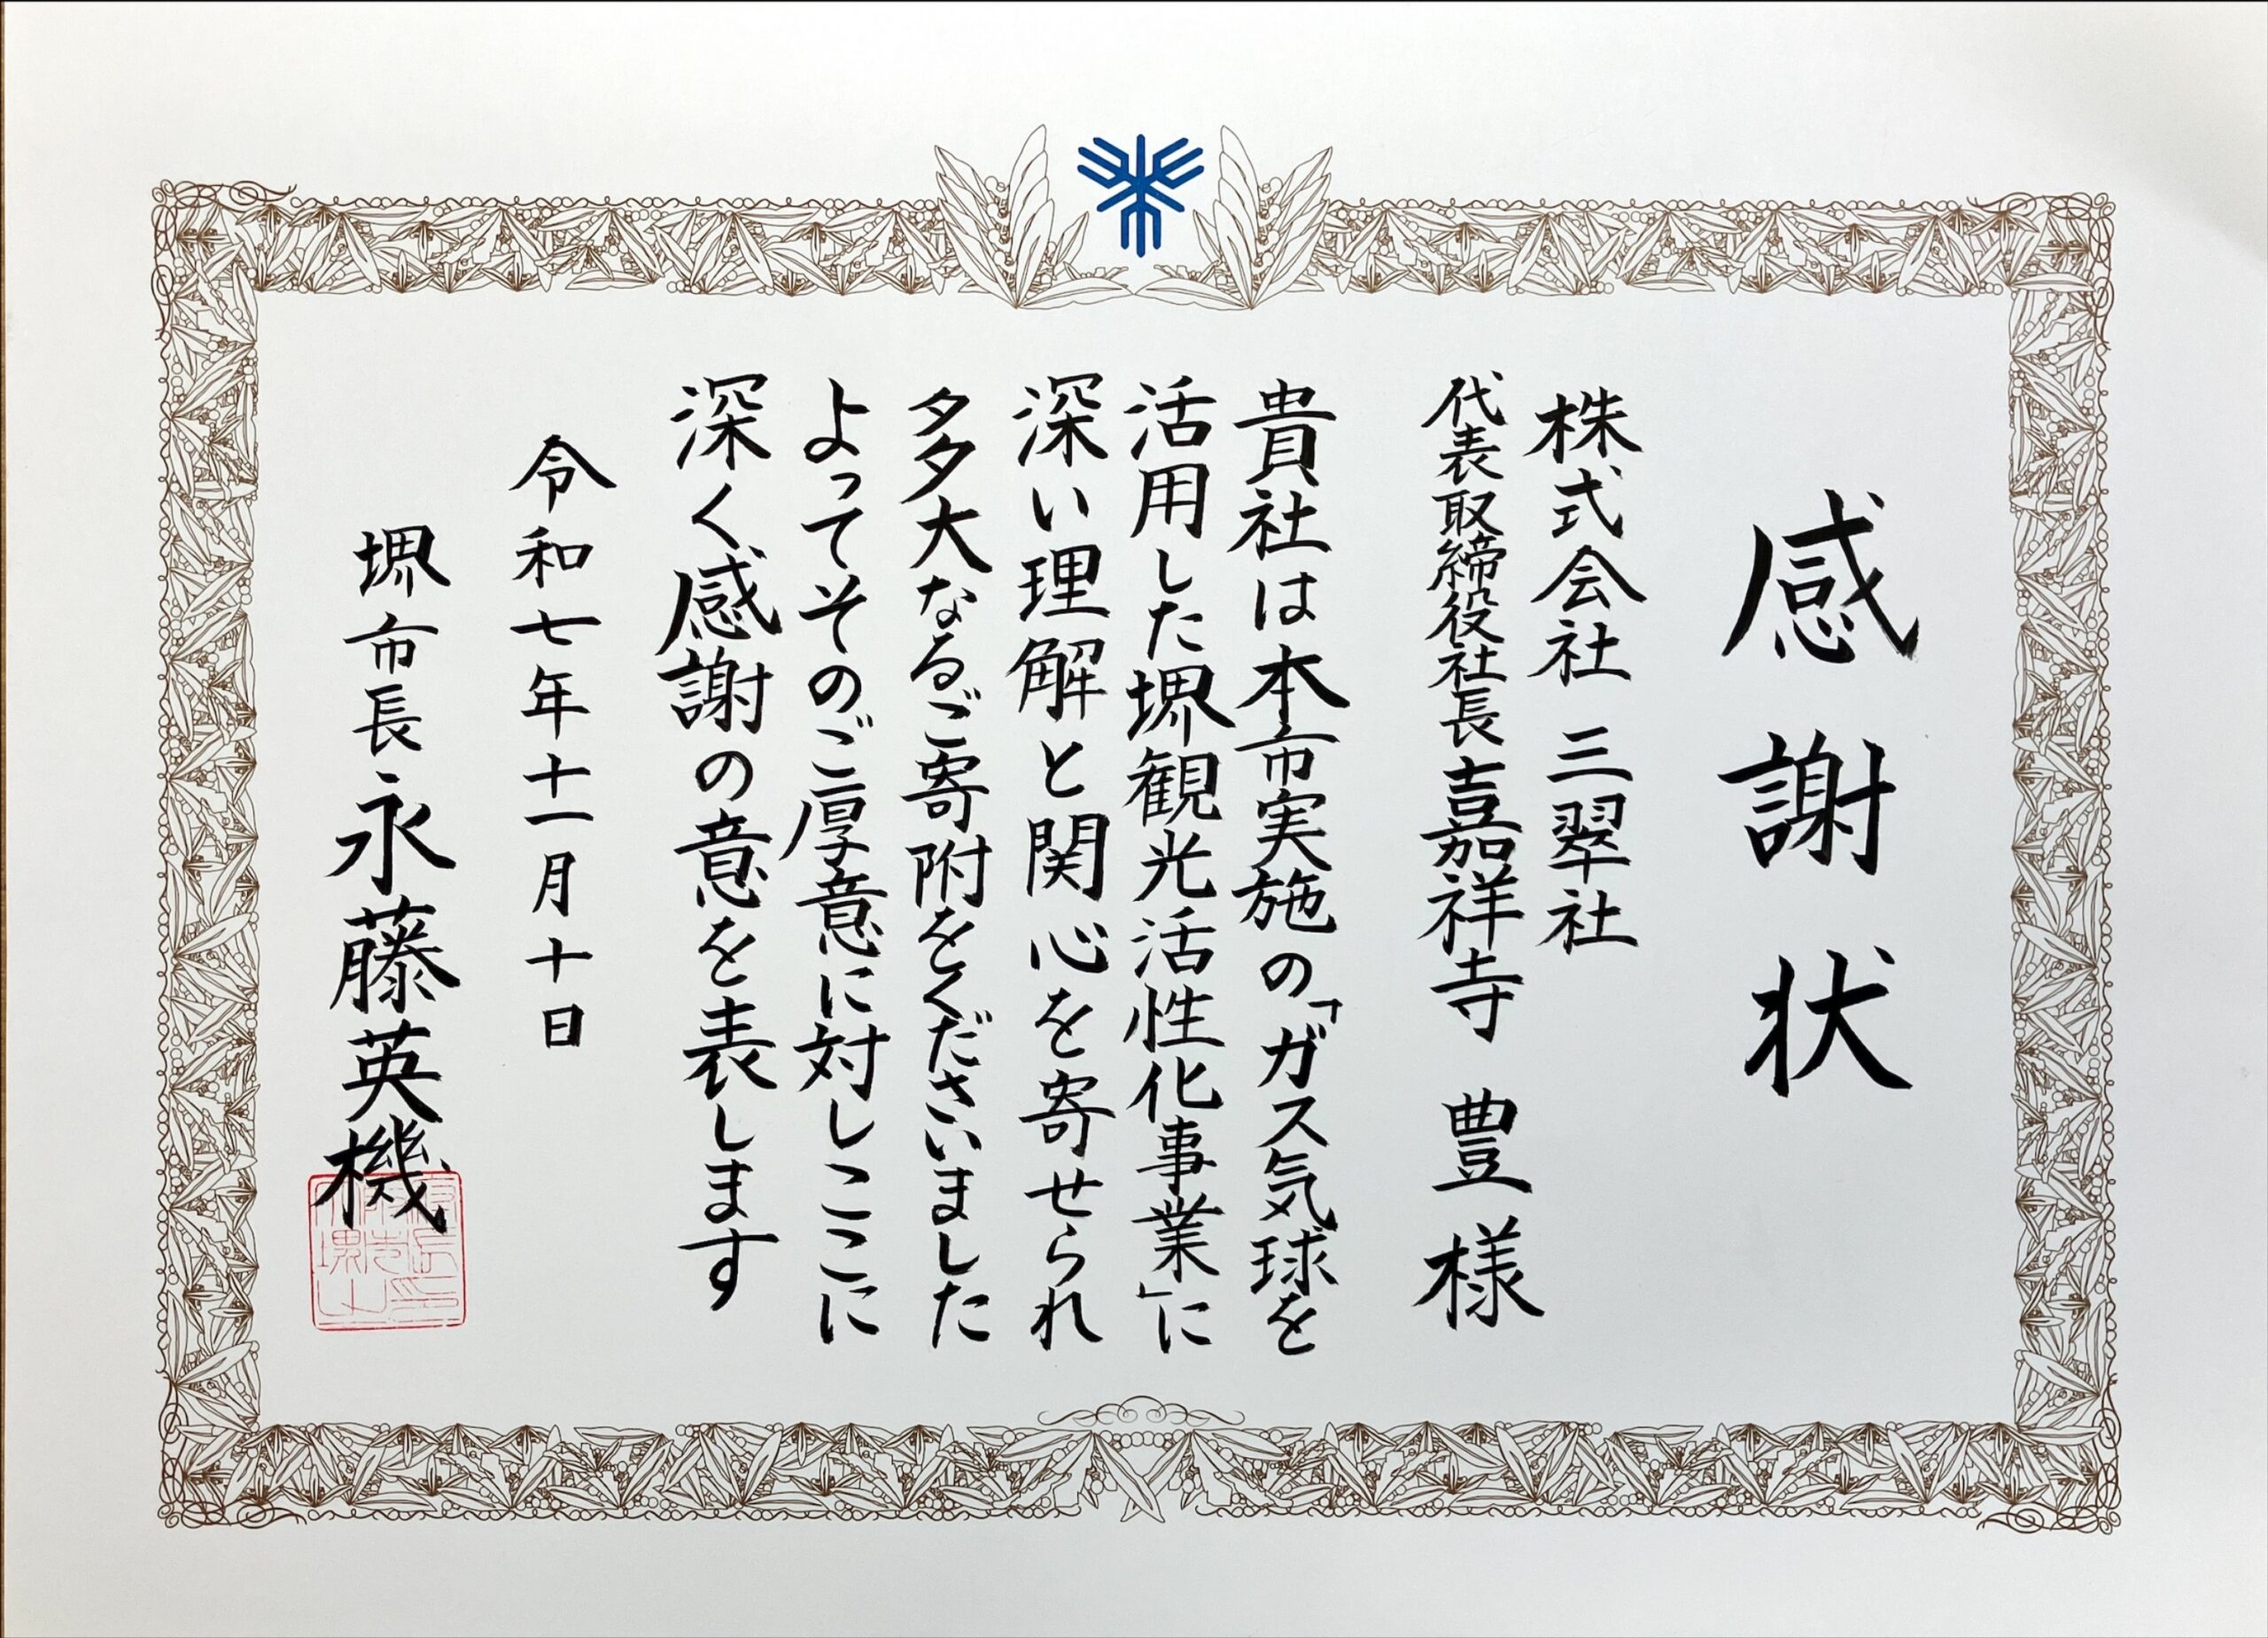 感謝状
株式会社 三翠社
代表取締役社長 嘉祥寺 豊 様
貴社は本市実施の「ガス気球を
活用した堺観光活性化事業」に
深い理解と関心を寄せられ
多大なるご寄附をくださいました
よってそのご厚意に対しここに
深く感謝の意を表します
令和七年十一月十日
堺市長 永藤英機